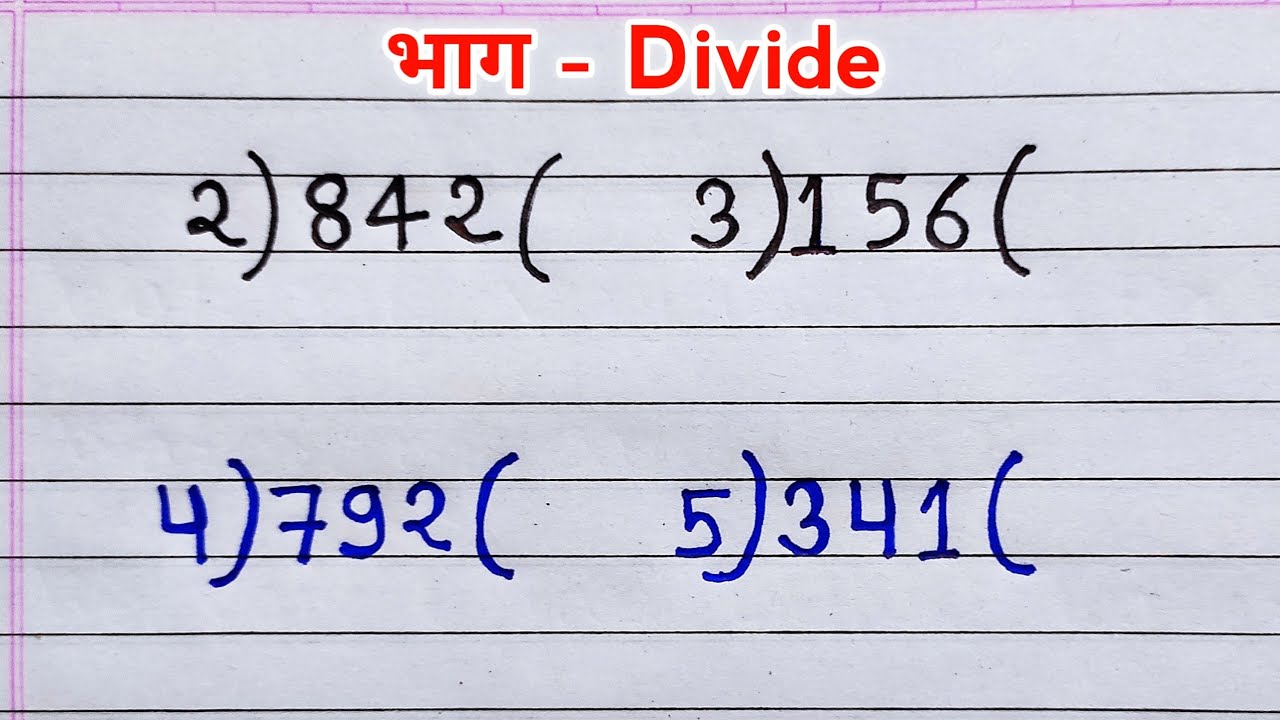 भाग - Divide
2)842( 3)156(
4)792( 5)341(